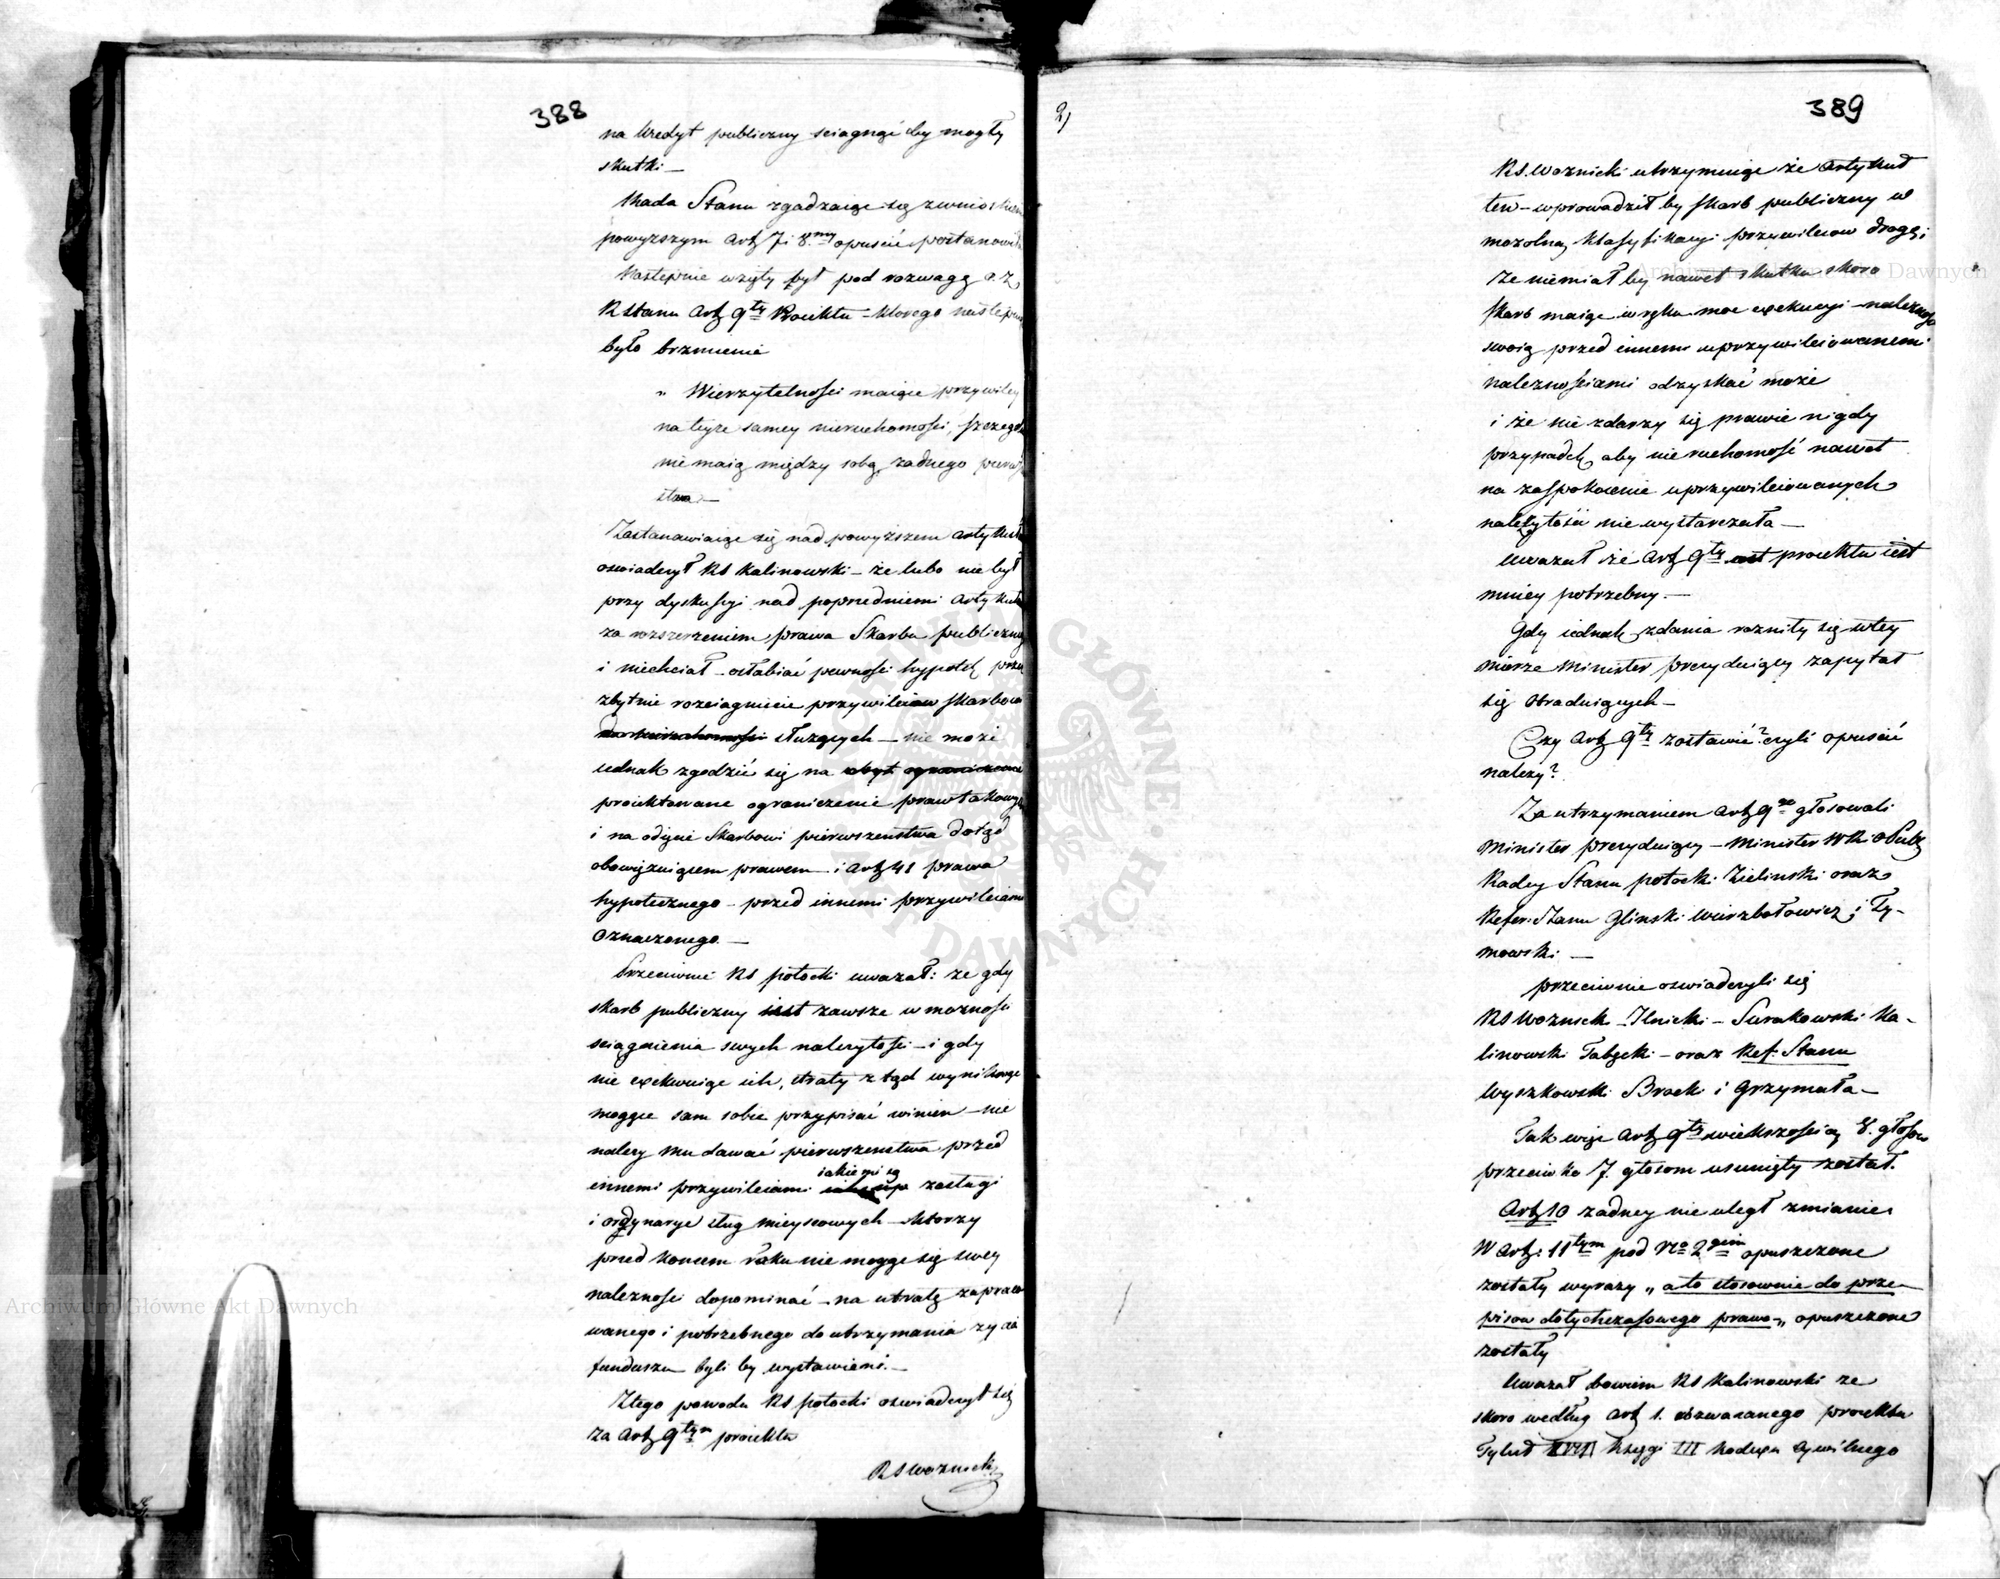 388
na kredyt publiczny sciągnąć by mogły
skutki —
Rada Stanu zgadzaiąc się z wnioskiem
powyższym Art 7 i 8.my opuścić postanowiła
Następnie wzięty był pod rozwagę O. Z.
R Stanu Art 9ty Proiektu – którego następne
było brzmienie
„ Wierzytelności maiące przywiley
na teyże samey nieruchomości, szczegól
nie maią między sobą żadnego pierwszeń
stwa —
Zastanawiaiąc się nad powyższem artykułem
oswiadczył RS Kalinowski – że lubo nie był
przy dyskussyi nad poprzedniemi Artykułami
za rozszerzeniem prawa Skarbu publicznego
i niechciał – osłabiać pewności hypotek przez
zbytnie rozciągnięcie przywileiow skarbowi
służących – nie może
iednak zgodzić się na zbyt ograniczone
proiektowane ograniczenie praw takowych
i na odięcie Skarbowi pierwszeństwa dotąd
obowięzuiącem prawem – i Art 41 prawa
hypotecznego – przed innemi przywileiami
oznaczonego. —
Przeciwnie RS Potocki uważał: że gdy
skarb publiczny iest zawsze w możności
sciągnienia swych należytości – i gdy
nie exekwuiąc ich, straty z tąd wyniknąć
mogące sam sobie przypisać winien – nie
należy mu dawać pierwszeństwa przed
iakiemi są
innemi przywileiami zasługi
i ordynarye sług mieyscowych – którzy
przed końcem roku nie mogą się swey
należności dopominać – na utratę zapraco
wanego i potrzebnego do utrzymania życia
funduszu byli by wystawieni. —
Z tego powodu RS Potocki oswiadczył się
za Art 9tym proiektu
RS Woznicki
2)
389
RS. Woznicki utrzymuiąc że Artykuł
ten – wprowadził by skarb publiczny w
mozolną klassyfikacyi przywileiow drogę;
że niemiał by nawet skutku skoro
skarb maiąc w ręku moc exekucyi – należność
swoią przed innemi uprzywileiowanemi
należnościami odzyskać może
i że nie zdarzy się prawie nigdy
przypadek, aby nieruchomość nawet
na zaspokoienie uprzywileiowanych
należytości nie wystarczała —
Uważał że Art 9ty proiektu iest
mniey potrzebny. —
Gdy iednak zdania rożniły się w tey
mierze Minister prezyduiący zapytał
się Obraduiących —
Czy Art 9ty zostawić? czyli opuścić
należy?
Za utrzymaniem Art 9go głosowali
Minister prezyduiący – Minister W R i O Publ
Radcy Stanu Potocki Zielinski oraz
Refer: Stanu Glinski Wierzbołowicz i Ty-
mowski —
przeciwnie oswiadczyli się
RS Woznicki – Ilnicki – Surakowski Ka-
linowski Tabęcki – oraz Ref: Stanu
Wyszkowski Brocki i Grzymała —
Tak więc Art 9ty większością 8. głosow
przeciwko 7. głosom usunięty został.
Art 10 żadney nie uległ zmianie
W Art: 11tym pod Nro 2gim opuszczone
zostały wyrazy „ a to stosownie do prze-
pisow dotychczasowego prawa „ opuszczone
zostały
Uważał bowiem RS Kalinowski że
skoro według Art 1. rozważanego proiektu
Tytuł XVIII Księgi III Kodexu Cywilnego
Archiwum Główne Akt Dawnych